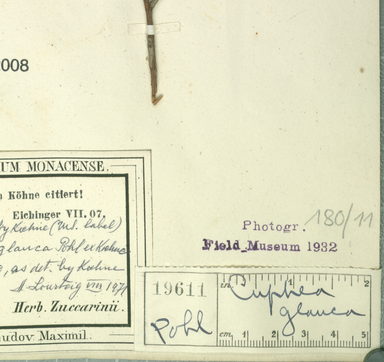 2008
UM MONACENSE.
n Köhne citiert!
Eichinger VII. 07.
by Koehne (Mt. label)
glauca Pohl ex Koehne
, as det. by Koehne
A. Lourteig VIII 1971
Herb. Zuccarinii.
udov. Maximil.
Photogr. 180/11
Field Museum 1932
19611
Pohl
in. 1 2
Cuphea
glauca
cm. 1 2 3 4 5